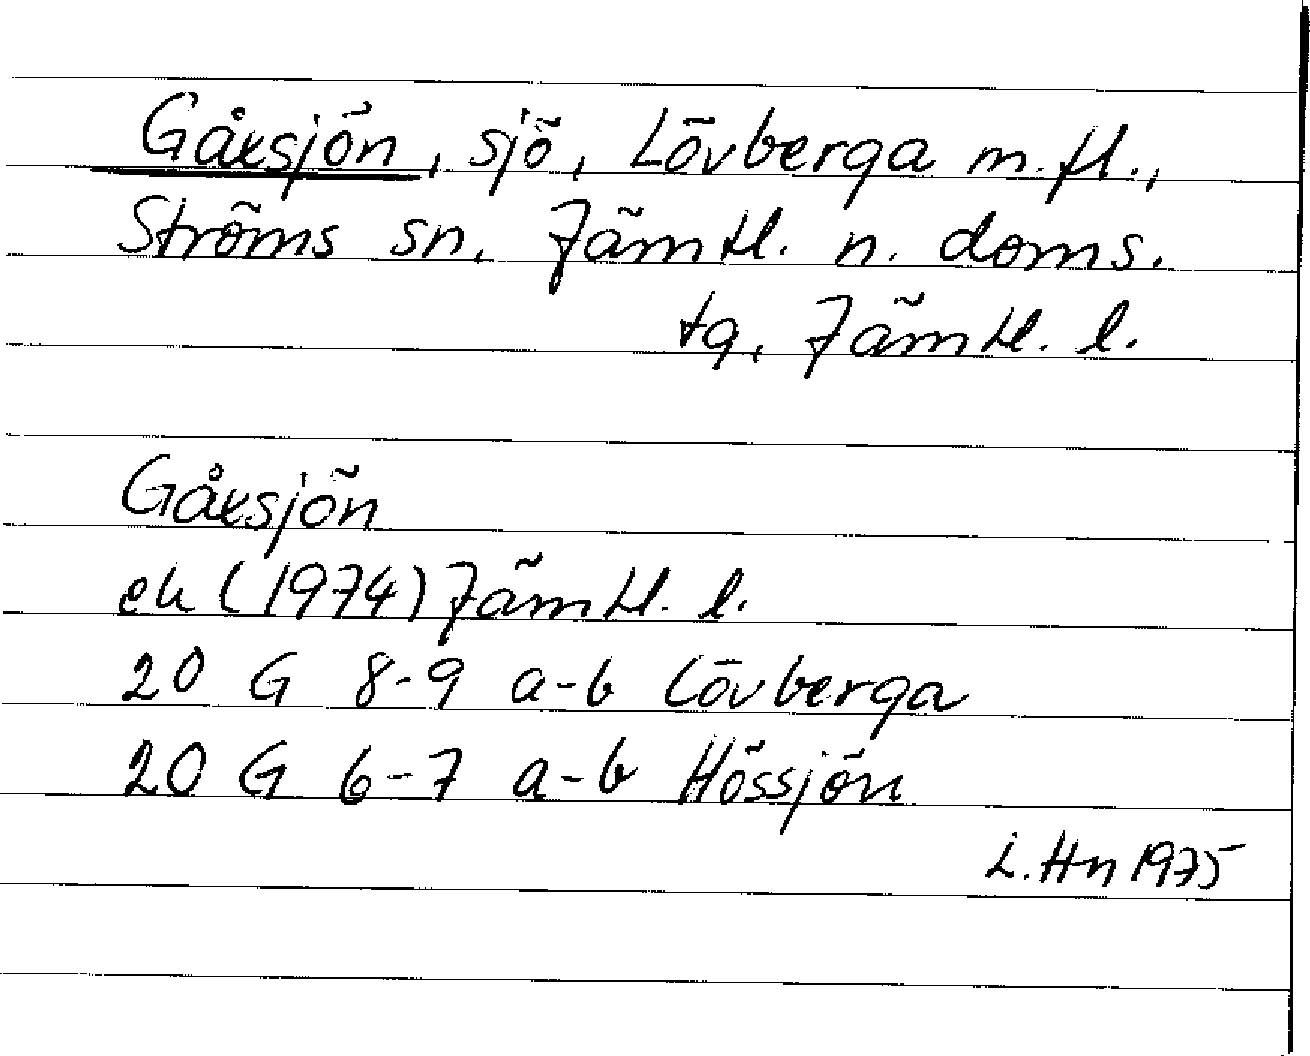 Gåxsjön, sjö, Lövberga m.fl.,
Ströms sn, Jämtl. n. doms.
tg, Jämtl. l.
Gåxsjön
ek (1974) Jämtl. l.
20 G 8-9 a-b Lövberga
20 G 6-7 a-b Hössjön
L. Hn 1975